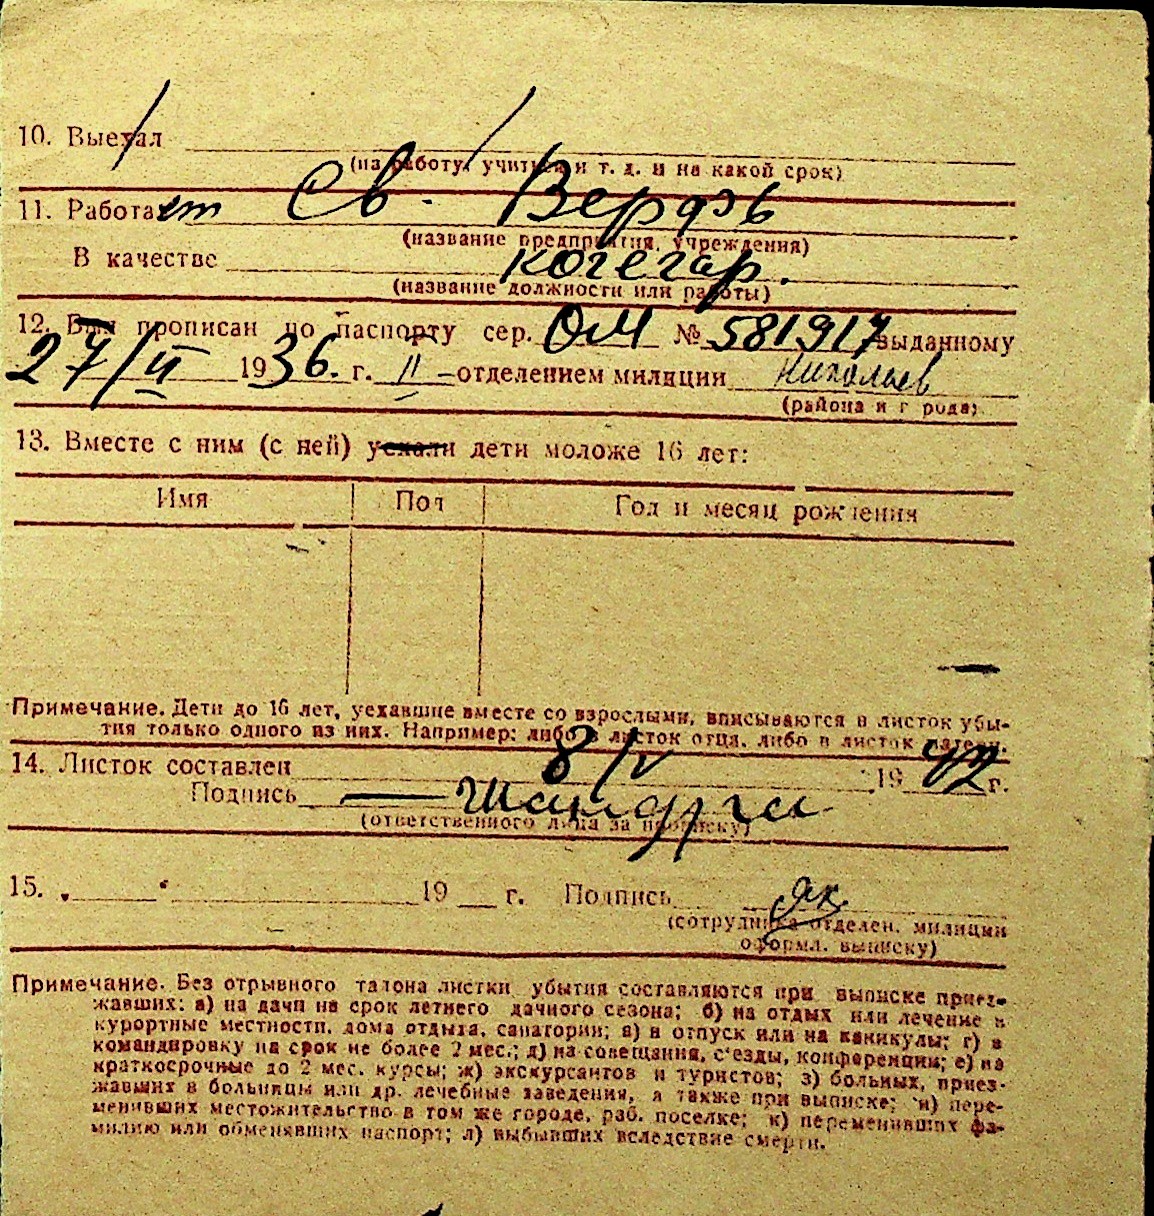 10. Выехал
(на работу, учиться и т. д. и на какой срок)
11. Работает Св. Вердзь
(название предприятия, учреждения)
В качестве кочегар.
(название должности или работы)
12. Был прописан по паспорту сер. ОМ № 581917 выданному
27/II 1936. г. II – отделением милиции Николаев
(района и города)
13. Вместе с ним (с ней) уехали дети моложе 16 лет:
Имя Пол Год и месяц рождения
Примечание. Дети до 16 лет, уехавшие вместе со взрослыми, вписываются в листок убы-
тия только одного из них. Например: либо в листок отца, либо в листок матери.
14. Листок составлен 8/V 1942 г.
Подпись
(ответственного лица за прописку)
15. 19 г. Подпись
(сотрудника отделен. милиции
оформл. выписку)
Примечание. Без отрывного талона листки убытия составляются при выписке приез-
жавших: а) на дачи на срок летнего дачного сезона; б) на отдых или лечение в
курортные местности, дома отдыха, санатории; в) в отпуск или на каникулы; г) в
командировку на срок не более 2 мес.; д) на совещания, с'езды, конференции; е) на
краткосрочные до 2 мес. курсы; ж) экскурсантов и туристов; з) больных, приез-
жавших в больницы или др. лечебные заведения, а также при выписке; и) пере-
менивших местожительство в том же городе, раб. поселке; к) переменивших фа-
милию или обменявших паспорт; л) выбывших вследствие смерти.